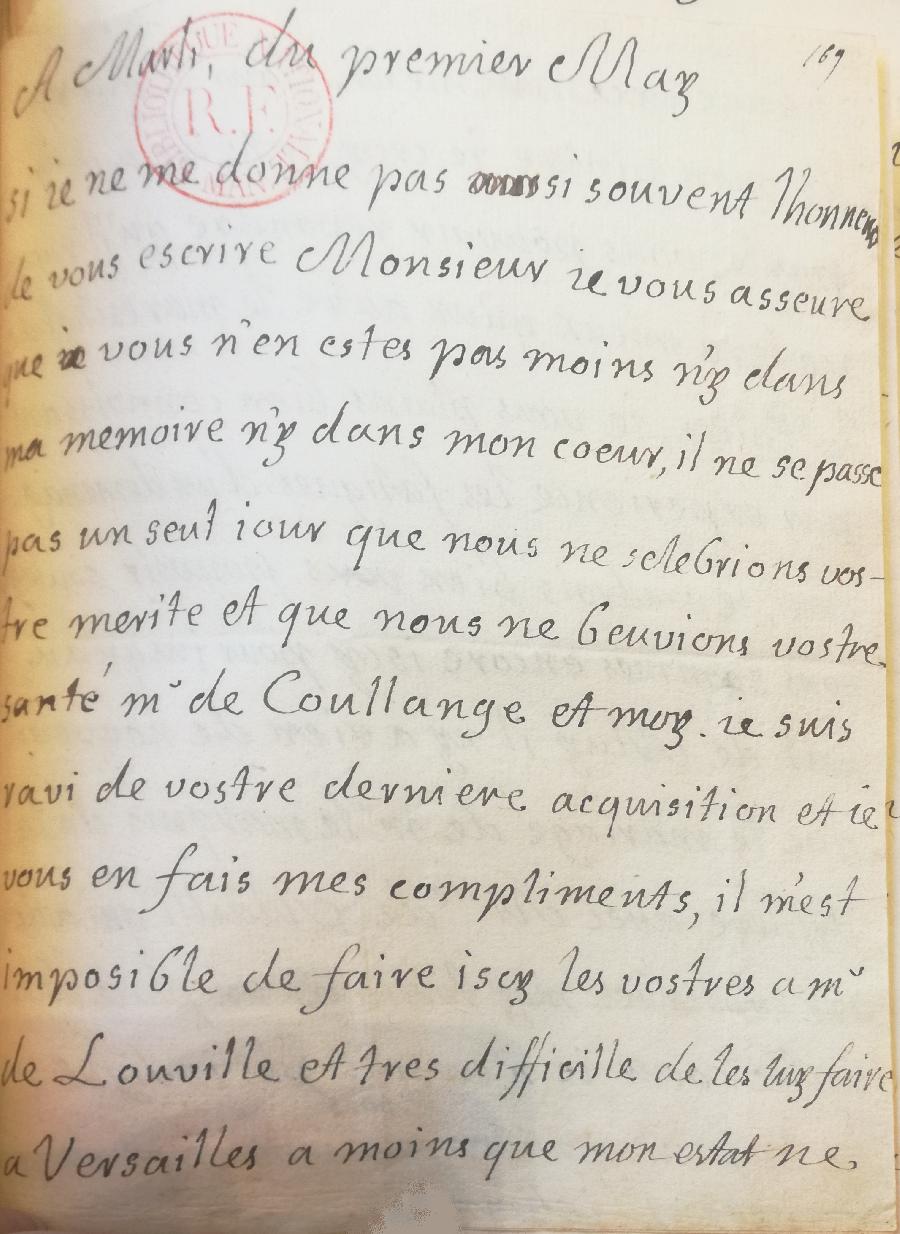 169
A Marli, du premier May
BIBLIOTHEQUE NATIONALE
R.F.
MAN
si ie ne me donne pas aussi souvent l'honneur
de vous escrire Monsieur ie vous asseure
que vous n'en estes pas moins n'y dans
ma memoire n'y dans mon coeur, il ne se passe
pas un seul iour que nous ne selebrions vos-
tre merite et que nous ne beuvions vostre
santé mr de Coullange et moy. ie suis
ravi de vostre derniere acquisition et ie
vous en fais mes compliments, il m'est
imposible de faire iscy les vostres a mr
de Louville et tres difficille de les luy faire
a Versailles a moins que mon estat ne